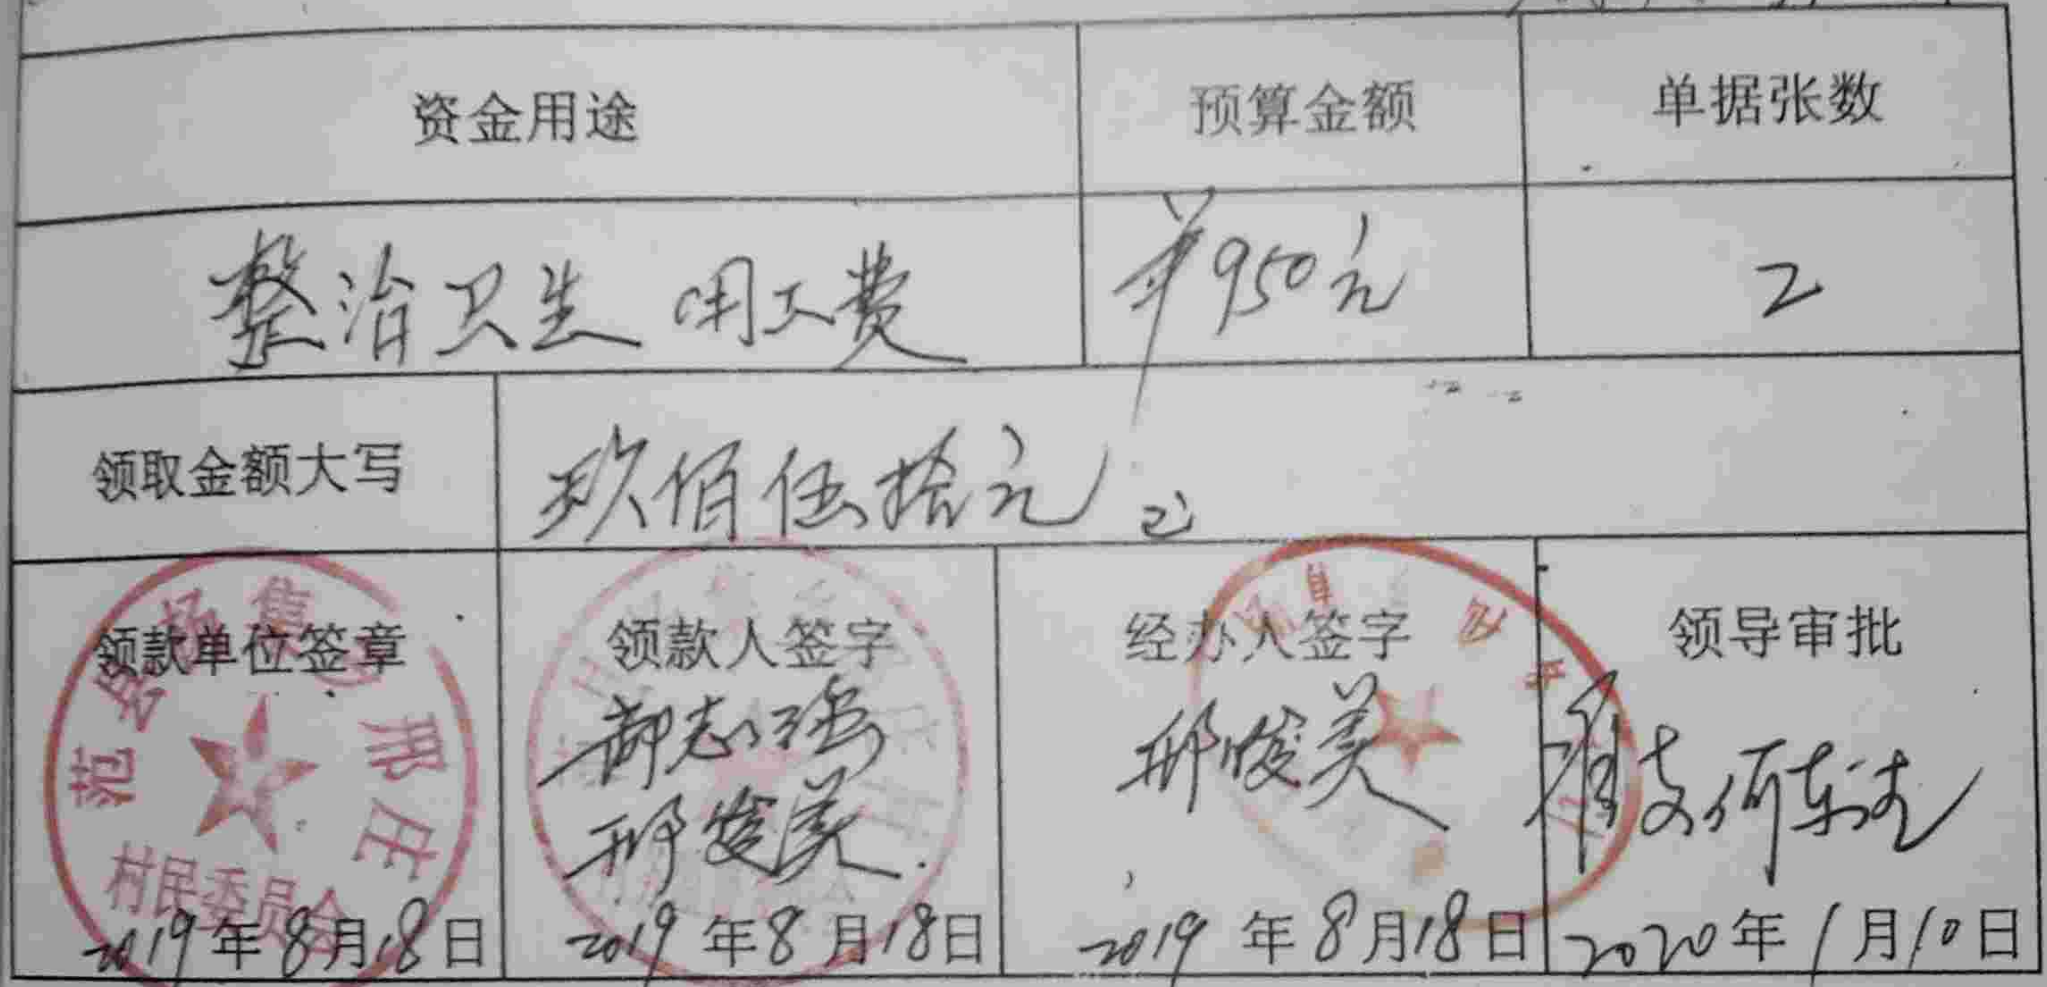 资金用途 预算金额 单据张数
整治卫生 用工费 ¥950元 2
领取金额大写 玖佰伍拾元
领款单位签章 领款人签字 经办人签字 领导审批
范县 杨集 邢庄
村民委员会
郝志强 邢俊美
邢俊美
2019年8月18日 2019年8月18日 2019年8月18日 2020年1月10日